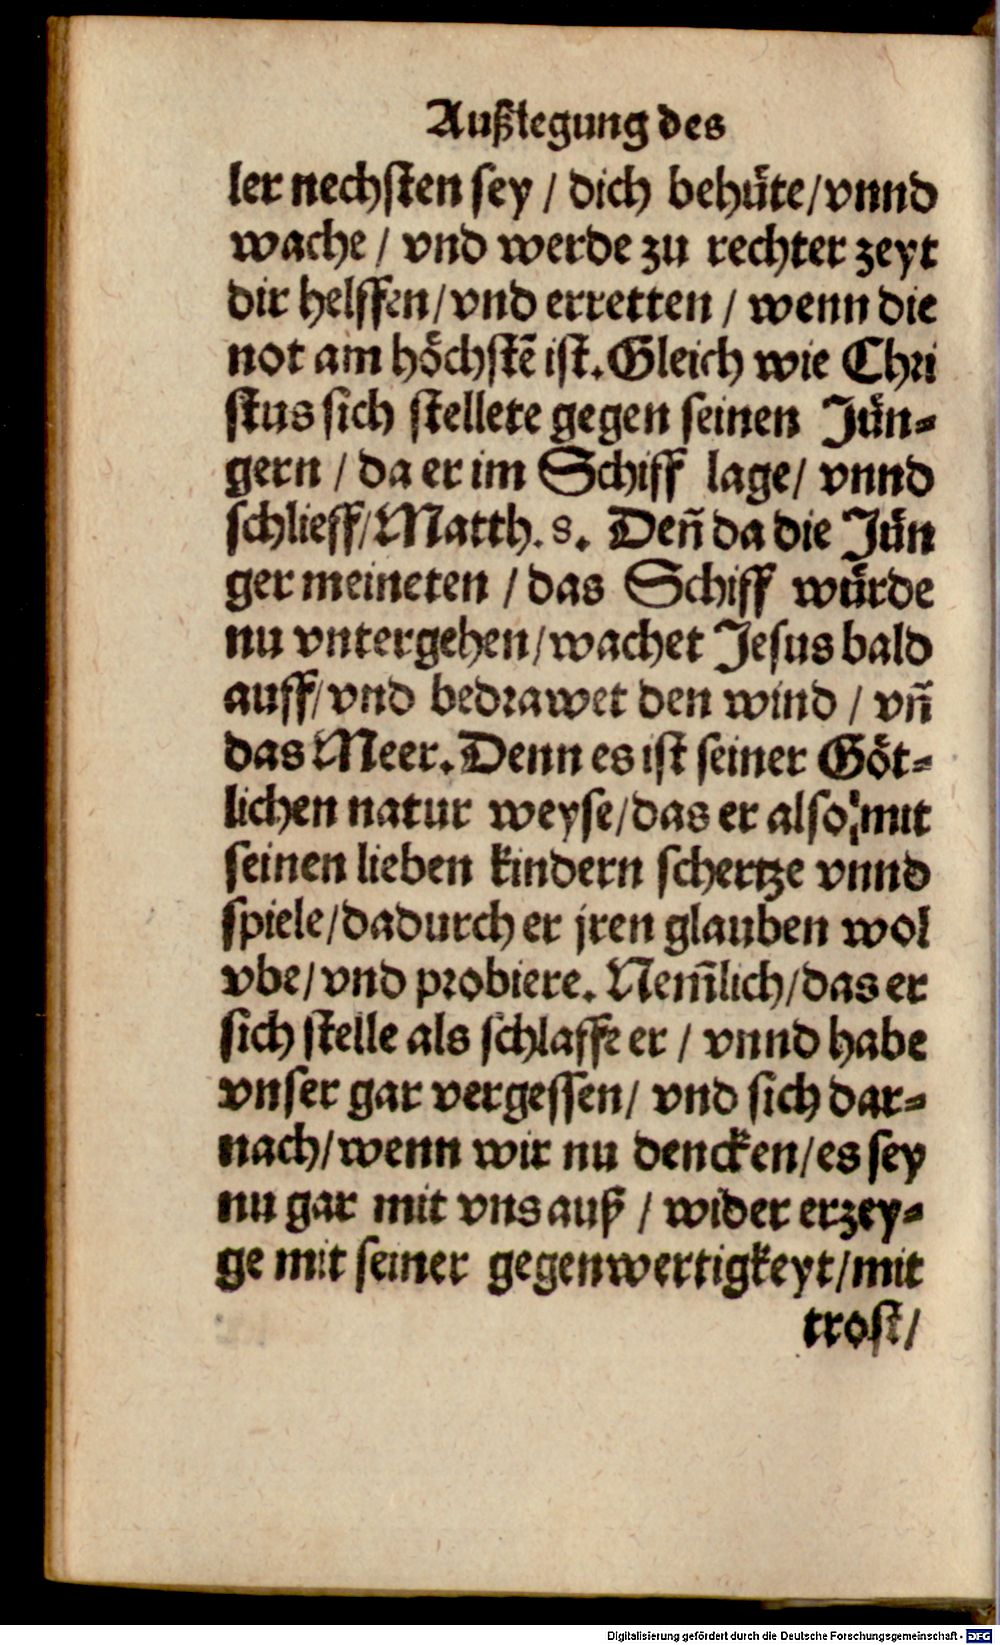 Außlegung des
ler nechſten ſey / dich behüte/vnnd
wache / vnd werde zu rechter zeyt
dir helffen/vnd erretten / wenn die
not am höchſtẽ iſt. Gleich wie Chri
ſtus ſich ſtellete gegen ſeinen Jün⸗
gern / da er im Schiff lage/ vnnd
ſchlieff/Matth. 8. Deñ da die Jün
ger meineten / das Schiff würde
nu vntergehen/wachet Jeſus bald
auff/vnd bedrawet den wind / vñ
das Meer. Denn es iſt ſeiner Göt⸗
lichen natur weyſe/das er alſo mit
ſeinen lieben kindern ſchertze vnnd
ſpiele/dadurch er jren glauben wol
vbe/vnd probiere. Nem̃lich/das er
ſich ſtelle als ſchlaffe er / vnnd habe
vnſer gar vergeſſen/ vnd ſich dar⸗
nach/wenn wir nu dencken/es ſey
nu gar mit vns auß / wider erzey⸗
ge mit ſeiner gegenwertigkeyt/mit
troſt/
Digitalisierung gefördert durch die Deutsche Forschungsgemeinschaft - DFG